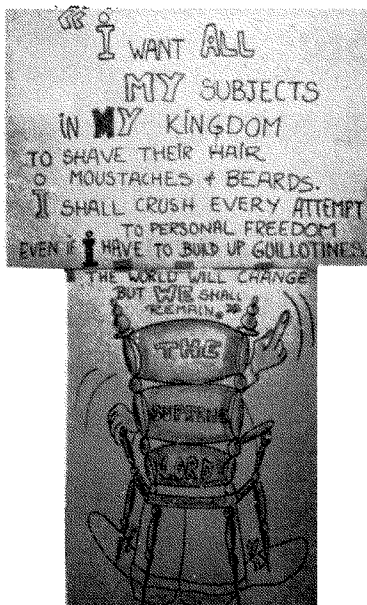 " I WANT ALL
MY SUBJECTS
IN MY KINGDOM
TO SHAVE THEIR HAIR
MOUSTACHES & BEARDS.
I SHALL CRUSH EVERY ATTEMPT
TO PERSONAL FREEDOM
EVEN IF I HAVE TO BUILD UP GUILLOTINES.
THE WORLD WILL CHANGE
BUT WE SHALL
REMAIN."
THE
SUPREME
LORD